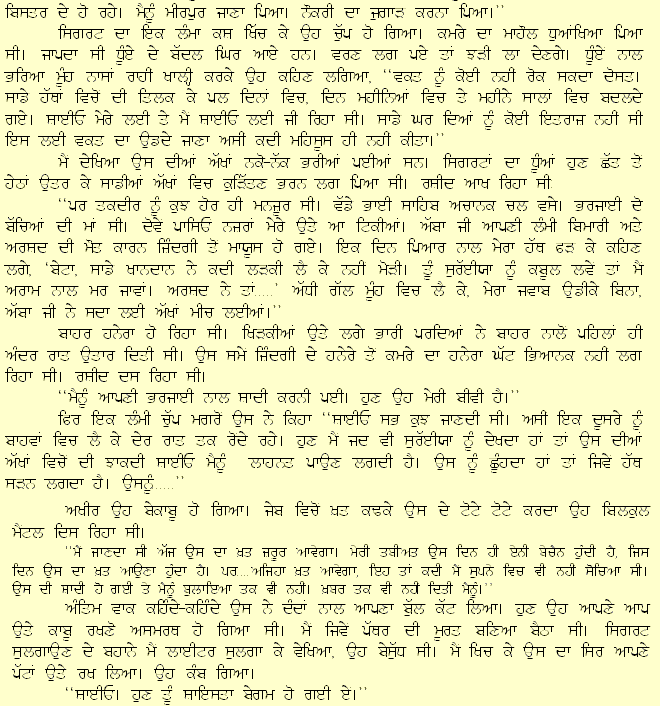 ਬਿਸਤਰ ਦੇ ਹੋ ਰਹੇ। ਮੈਨੂੰ ਮੀਰਪੁਰ ਜਾਣਾ ਪਿਆ। ਨੌਕਰੀ ਦਾ ਜੁਗਾੜ ਕਰਨਾ ਪਿਆ।''
ਸਿਗਰਟ ਦਾ ਇਕ ਲੰਮਾ ਕਸ ਖਿੱਚ ਕੇ ਉਹ ਚੁੱਪ ਹੋ ਗਿਆ। ਕਮਰੇ ਦਾ ਮਾਹੌਲ ਧੁਆਂਖਿਆ ਪਿਆ
ਸੀ। ਜਾਪਦਾ ਸੀ ਧੂੰਏ ਦੇ ਬੱਦਲ ਘਿਰ ਆਏ ਹਨ। ਵਰਣ ਲਗ ਪਏ ਤਾਂ ਝੜੀ ਲਾ ਦੇਣਗੇ। ਧੂੰਏਂ ਨਾਲ
ਭਰਿਆ ਮੂੰਹ ਨਾਸਾਂ ਰਾਹੀ ਖਾਲ੍ਹੀ ਕਰਕੇ ਉਹ ਕਹਿਣ ਲਗਿਆ, ''ਵਕਤ ਨੂੰ ਕੋਈ ਨਹੀਂ ਰੋਕ ਸਕਦਾ ਦੋਸਤ।
ਸਾਡੇ ਹੱਥਾਂ ਵਿਚੋਂ ਦੀ ਤਿਲਕ ਕੇ ਪਲ ਦਿਨਾਂ ਵਿਚ, ਦਿਨ ਮਹੀਨਿਆਂ ਵਿਚ ਤੇ ਮਹੀਨੇ ਸਾਲਾਂ ਵਿਚ ਬਦਲਦੇ
ਗਏ। ਸਾਈਓ ਮੇਰੇ ਲਈ ਤੇ ਮੈਂ ਸਾਈਓ ਲਈ ਜੀ ਰਿਹਾ ਸੀ। ਸਾਡੇ ਘਰ ਦਿਆਂ ਨੂੰ ਕੋਈ ਇਤਰਾਜ਼ ਨਹੀ ਸੀ
ਇਸ ਲਈ ਵਕਤ ਦਾ ਉਡਦੇ ਜਾਣਾ ਅਸੀ ਕਦੀ ਮਹਿਸੂਸ ਹੀ ਨਹੀਂ ਕੀਤਾ।''
ਮੈ ਦੇਖਿਆ ਉਸ ਦੀਆਂ ਅੱਖਾਂ ਨਕੋ-ਨੱਕ ਭਰੀਆਂ ਪਈਆਂ ਸਨ। ਸਿਗਰਟਾਂ ਦਾ ਧੂੰਆਂ ਹੁਣ ਛੱਤ ਤੋਂ
ਹੇਠਾਂ ਉਤਰ ਕੇ ਸਾਡੀਆਂ ਅੱਖਾਂ ਵਿਚ ਕੁੜਿੱਤਣ ਭਰਨ ਲਗ ਪਿਆ ਸੀ। ਰਸ਼ੀਦ ਆਖ ਰਿਹਾ ਸੀ:
''ਪਰ ਤਕਦੀਰ ਨੂੰ ਕੁਝ ਹੋਰ ਹੀ ਮਨਜ਼ੂਰ ਸੀ। ਵੱਡੇ ਭਾਈ ਸਾਹਿਬ ਅਚਾਨਕ ਚਲ ਵਸੇ। ਭਰਜਾਈ ਦੇ
ਬੱਚਿਆਂ ਦੀ ਮਾਂ ਸੀ। ਦੋਵੇਂ ਪਾਸਿਓਂ ਨਜ਼ਰਾਂ ਮੇਰੇ ਉਤੇ ਆ ਟਿਕੀਆਂ। ਅੱਬਾ ਜੀ ਆਪਣੀ ਲੰਮੀ ਬਿਮਾਰੀ ਅਤੇ
ਅਰਸਦ ਦੀ ਮੌਤ ਕਾਰਨ ਜ਼ਿੰਦਗੀ ਤੋਂ ਮਾਯੂਸ ਹੋ ਗਏ। ਇਕ ਦਿਨ ਪਿਆਰ ਨਾਲ ਮੇਰਾ ਹੱਥ ਫੜ ਕੇ ਕਹਿਣ
ਲਗੇ, 'ਬੇਟਾ, ਸਾਡੇ ਖਾਨਦਾਨ ਨੇ ਕਦੀ ਲੜਕੀ ਲੈ ਕੇ ਨਹੀਂ ਮੋੜੀ। ਤੂੰ ਸੁਰੱਈਯਾ ਨੂੰ ਕਬੂਲ ਲਵੇਂ ਤਾਂ ਮੈਂ
ਅਰਾਮ ਨਾਲ ਮਰ ਜਾਵਾਂ। ਅਰਸਦ ਨੇ ਤਾਂ.....' ਅੱਧੀ ਗੱਲ ਮੂੰਹ ਵਿਚ ਲੈ ਕੇ, ਮੇਰਾ ਜਵਾਬ ਉਡੀਕੇ ਬਿਨਾ,
ਅੱਬਾ ਜੀ ਨੇ ਸਦਾ ਲਈ ਅੱਖਾਂ ਮੀਚ ਲਈਆਂ।''
ਬਾਹਰ ਹਨੇਰਾ ਹੋ ਰਿਹਾ ਸੀ। ਖਿੜਕੀਆਂ ਉਤੇ ਲਗੇ ਭਾਰੀ ਪਰਦਿਆਂ ਨੇ ਬਾਹਰ ਨਾਲੋਂ ਪਹਿਲਾਂ ਹੀ
ਅੰਦਰ ਰਾਤ ਉਤਾਰ ਦਿਤੀ ਸੀ। ਉਸ ਸਮੇਂ ਜ਼ਿੰਦਗੀ ਦੇ ਹਨੇਰੇ ਤੋਂ ਕਮਰੇ ਦਾ ਹਨੇਰਾ ਘੱਟ ਭਿਆਨਕ ਨਹੀ ਲਗ
ਰਿਹਾ ਸੀ। ਰਸ਼ੀਦ ਦਸ ਰਿਹਾ ਸੀ।
''ਮੈਨੂੰ ਆਪਣੀ ਭਰਜਾਈ ਨਾਲ ਸਾਦੀ ਕਰਨੀ ਪਈ। ਹੁਣ ਉਹ ਮੇਰੀ ਬੀਵੀ ਹੈ।''
ਫਿਰ ਇਕ ਲੰਮੀ ਚੁੱਪ ਮਗਰੋਂ ਉਸ ਨੇ ਕਿਹਾ ''ਸਾਈਓ ਸਭ ਕੁਝ ਜਾਣਦੀ ਸੀ। ਅਸੀਂ ਇਕ ਦੂਸਰੇ ਨੂੰ
ਬਾਹਵਾਂ ਵਿਚ ਲੈ ਕੇ ਦੇਰ ਰਾਤ ਤਕ ਰੋਂਦੇ ਰਹੇ। ਹੁਣ ਮੈਂ ਜਦ ਵੀ ਸੁਰੱਈਯਾ ਨੂੰ ਦੇਖਦਾ ਹਾਂ ਤਾਂ ਉਸ ਦੀਆਂ
ਅੱਖਾਂ ਵਿਚੋਂ ਦੀ ਝਾਕਦੀ ਸਾਈਓ ਮੈਨੂੰ ਲਾਹਨਤ ਪਾਉਣ ਲਗਦੀ ਹੈ। ਉਸ ਨੂੰ ਛੂੰਹਦਾ ਹਾਂ ਤਾਂ ਜਿਵੇਂ ਹੱਥ
ਸੜਨ ਲਗਦਾ ਹੈ। ਉਸਨੂੰ.....''
ਅਖੀਰ ਉਹ ਬੇਕਾਬੂ ਹੋ ਗਿਆ। ਜੇਬ ਵਿਚੋਂ ਖ਼ਤ ਕਢਕੇ ਉਸ ਦੇ ਟੋਟੇ ਟੋਟੇ ਕਰਦਾ ਉਹ ਬਿਲਕੁਲ
ਮੈਂਟਲ ਦਿਸ ਰਿਹਾ ਸੀ।
''ਮੈ ਜਾਣਦਾ ਸੀ ਅੱਜ ਉਸ ਦਾ ਖ਼ਤ ਜ਼ਰੂਰ ਆਵੇਗਾ। ਮੇਰੀ ਤਬੀਅਤ ਉਸ ਦਿਨ ਹੀ ਏਨੀ ਬੇਚੈਨ ਹੁੰਦੀ ਹੈ, ਜਿਸ
ਦਿਨ ਉਸ ਦਾ ਖ਼ਤ ਆਉਣਾ ਹੁੰਦਾ ਹੈ। ਪਰ...ਅਜਿਹਾ ਖ਼ਤ ਆਵੇਗਾ, ਇਹ ਤਾਂ ਕਦੀ ਮੈਂ ਸੁਪਨੇ ਵਿਚ ਵੀ ਨਹੀ ਸੋਚਿਆ ਸੀ।
ਉਸ ਦੀ ਸਾਦੀ ਹੋ ਗਈ ਤੇ ਮੈਨੂੰ ਬੁਲਾਇਆ ਤਕ ਵੀ ਨਹੀ। ਖ਼ਬਰ ਤਕ ਵੀ ਨਹੀ ਦਿਤੀ ਮੈਨੂੰ।''
ਅੰਤਿਮ ਵਾਕ ਕਹਿੰਦੇ-ਕਹਿੰਦੇ ਉਸ ਨੇ ਦੰਦਾਂ ਨਾਲ ਆਪਣਾ ਬੁੱਲ ਕੱਟ ਲਿਆ। ਹੁਣ ਉਹ ਆਪਣੇ ਆਪ
ਉਤੇ ਕਾਬੂ ਰਖਣੋ ਅਸਮਰਥ ਹੋ ਗਿਆ ਸੀ। ਮੈਂ ਜਿਵੇਂ ਪੱਥਰ ਦੀ ਮੂਰਤ ਬਣਿਆ ਬੈਠਾ ਸੀ। ਸਿਗਰਟ
ਸੁਲਗਾਉਣ ਦੇ ਬਹਾਨੇ ਮੈਂ ਲਾਈਟਰ ਸੁਲਗਾ ਕੇ ਵੇਖਿਆ, ਉਹ ਬੇਸੁੱਧ ਸੀ। ਮੈਂ ਖਿਚ ਕੇ ਉਸ ਦਾ ਸਿਰ ਆਪਣੇ
ਪੱਟਾਂ ਉਤੇ ਰਖ ਲਿਆ। ਉਹ ਕੰਬ ਗਿਆ।
''ਸਾਈਓ। ਹੁਣ ਤੂੰ ਸਾਇਸਤਾ ਬੇਗਮ ਹੋ ਗਈ ਏਂ।''